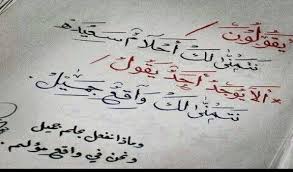 يقولون /
نتمنى لك أحلام سعيده
* ألا يوجد أحد يقول /
نتمنى لك واقع جميل .
وماذا نفعل بحلم جميل
ونحن في واقع مؤلم .